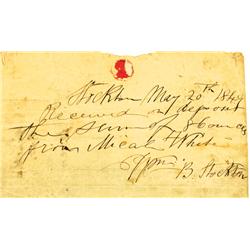 Stockton May 20th 1849
Received on deposit
the sum of 8 ounces
from Micah White
B. Stockton